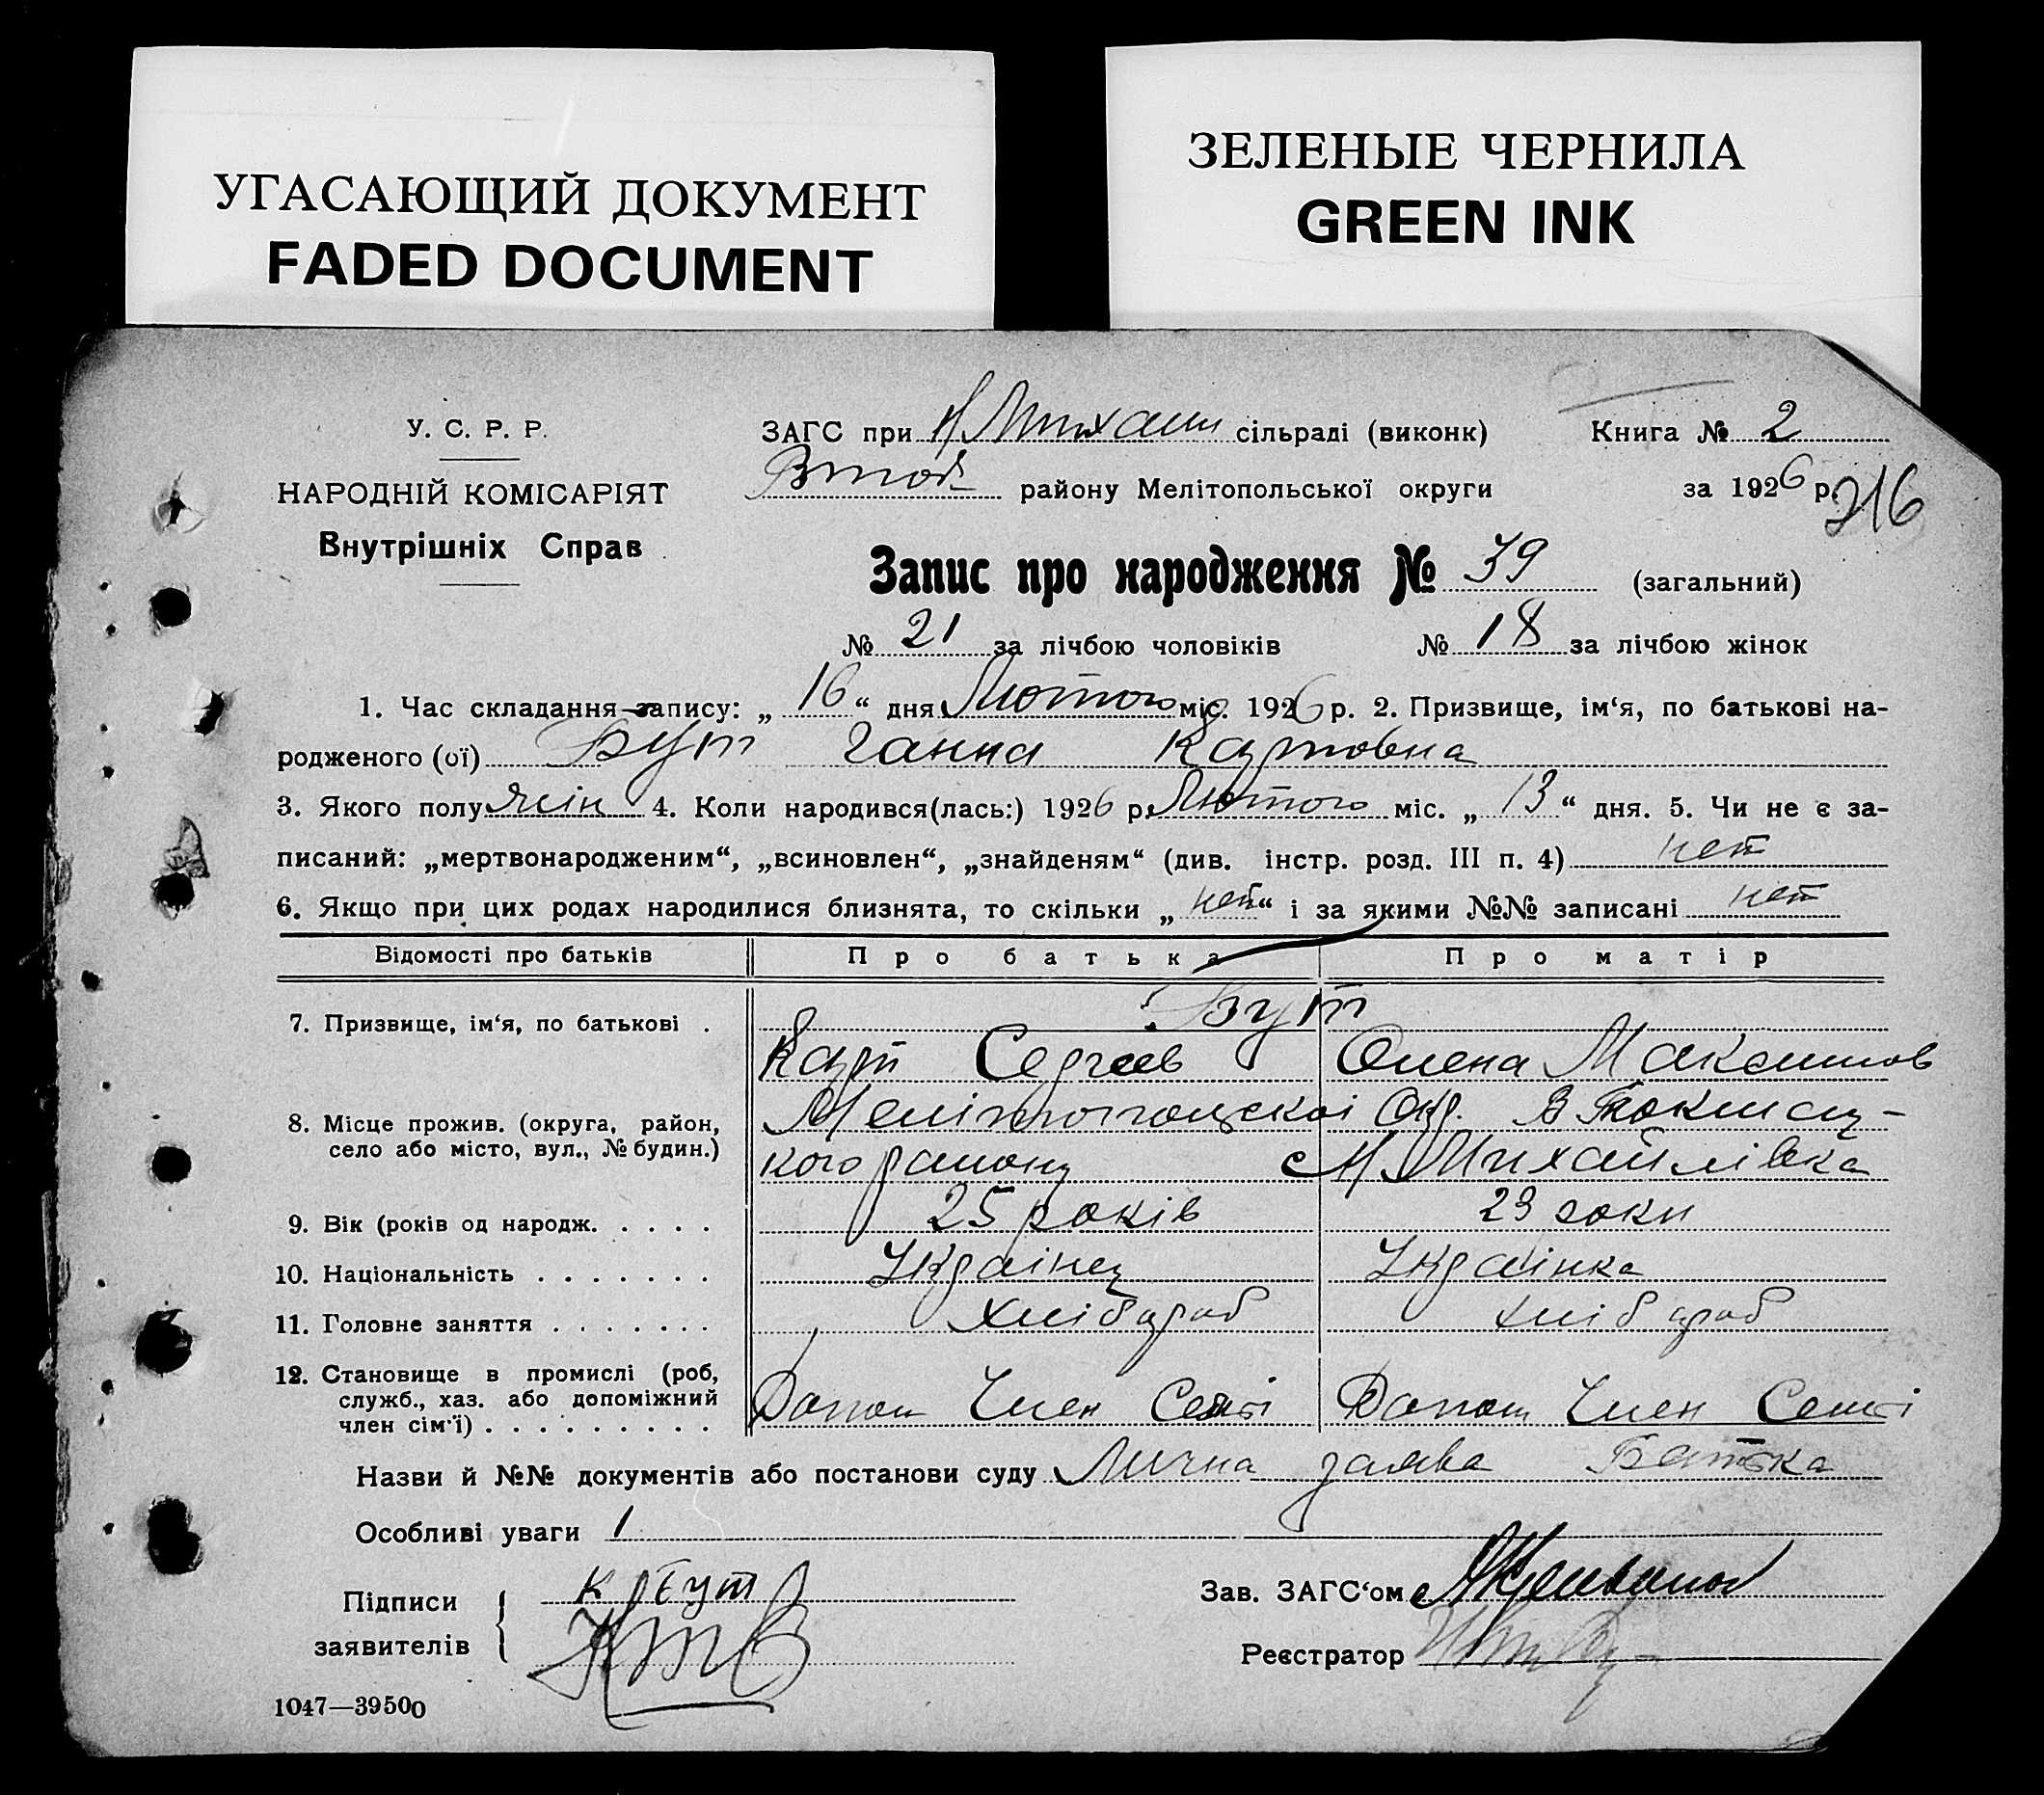 УГАСАЮЩИЙ ДОКУМЕНТ
FADED DOCUMENT
ЗЕЛЕНЫЕ ЧЕРНИЛА
GREEN INK
У. С. Р. Р.
НАРОДНІЙ КОМІСАРІЯТ
Внутрішніх Справ
ЗАГС при Н Михайл сільраді (виконк)
Книга № 2
Вток району Мелітопольської округи
за 1926 р.
216
Запис про народження № 39 (загальний)
№ 21 за лічбою чоловіків № 18 за лічбою жінок
1. Час складання запису: „16“ дня Лютого міс. 1926 р. 2. Призвище, ім‘я, по батькові на-
родженого (ої) Бут Ганна Карповна
3. Якого полу жін 4. Коли народився(лась:) 1926 р. Лютого міс. „13“ дня. 5. Чи не є за-
писаний: „мертвонародженим“, „всиновлен“, „знайденям“ (див. інстр. розд. III п. 4) нет
6. Якщо при цих родах народилися близнята, то скільки „нет“ і за якими №№ записані нет
Відомості про батьків Про батька Про матір
7. Призвище, ім‘я, по батькові . Бут
Карп Сергеев Олена Максимов
8. Місце прожив. (округа, район, село або місто, вул., № будин.) Мелітопольскоі Окр. В Токмац-
кого району с Н. Михайлівка
9. Вік (років од народж. . . . . 25 років 23 роки
10. Національність . . . . . . . Украінец Украінка
11. Головне заняття . . . . . . . Хлібороб хлібороб
12. Становище в промислі (роб,
служб., хаз. або допоміжний
член сім‘ї) . . . . . . . . . Допом Член Семі Допом Член Семі
Назви й №№ документів або постанови суду Лична заява Батька
Особливі уваги /
Підписи
заявителів
К Бут
Зав. ЗАГС‘ом
Реєстратор
1047—39500